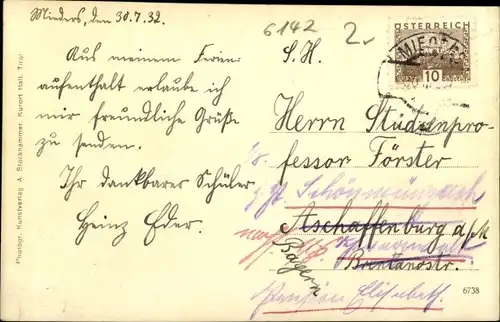 Mieders, den 30.7.32.
6142
2.
Aus meinem Ferien-
aufenthalt erlaube ich
mir freundliche Grüße
zu senden.
Ihr dankbarer Schüler
Heinz Eder.
S. H.
Herrn Studienpro-
fessor Förster
z. Zt. Schönmünzach
Aschaffenburg a/M
Bayern
Brentanostr.
Pension Elisabeth.
ÖSTERREICH
10
Photogr. Kunstverlag A. Stockhammer, Kurort Hall, Tirol
6738